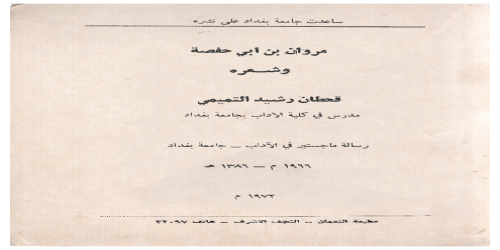 ساعدت جامعة بغداد على نشره
مروان بن ابي حفصة
وشعره
قحطان رشيد التميمي
مدرس في كلية الآداب بجامعة بغداد
رسالة ماجستير في الآداب - جامعة بغداد
١٩٦٦ م - ١٣٨٦ هـ
١٩٧٢ م
مطبعة النعمان - النجف الاشرف - هاتف ٢٢٠٩٧